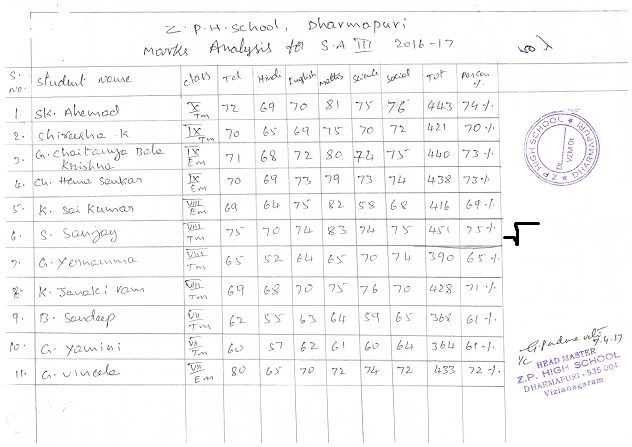 Z.P.H. School, Dharmapuri
Marks Analysis for S.A III 2016-17
S. No. Student Name Class Tel Hindi English Maths Science Social Tot Percen %
1. Sk. Ahemad X Tm 72 69 70 81 75 76 443 74 %
2. Shireesha .K IX Tm 70 65 69 75 70 72 421 70 %
3. G. Chaitanya Bala Krishna IX Em 71 68 72 80 74 75 440 73 %
4. Ch. Hema Sankar IX Em 70 69 73 79 73 74 438 73 %
5. K. Sai Kumar VIII Em 69 64 75 82 58 68 416 69 %
6. S. Sanjay VIII Tm 75 70 74 83 74 75 451 75 %
7. G. Yernamma VIII Tm 65 52 64 65 70 74 390 65 %
8. K. Janaki ram VIII Tm 69 68 70 75 76 70 428 71 %
9. B. Sandeep VII Tm 62 55 63 64 59 65 368 61 %
10. G. Yamini VII Tm 60 57 62 61 60 64 364 61 %
11. G. Vincela VII Em 80 65 70 72 74 72 433 72 %
Z.P. HIGH SCHOOL
DHARMAPURI
VZM Dt.
7.4.17
HEAD MASTER
Z.P. HIGH SCHOOL
DHARMAPURI - 535 004
Vizianagaram